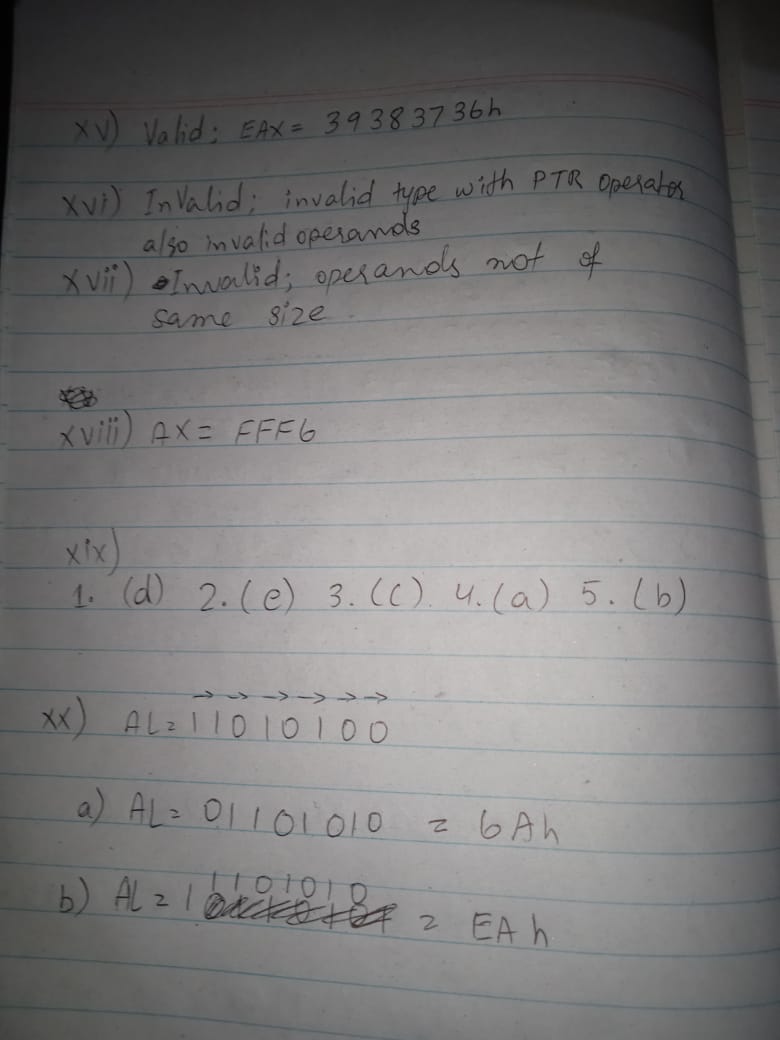 xv) Valid; EAX = 39383736h
xvi) InValid; invalid type with PTR Operator
also invalid operands
xvii) Invalid; operands not of
same size
xviii) AX = FFF6
xix)
1. (d) 2. (e) 3. (c). 4. (a) 5. (b)
→ → → → → →
xx) AL = 11010100
a) AL = 01101010 = 6Ah
b) AL = 11101010 = EAh